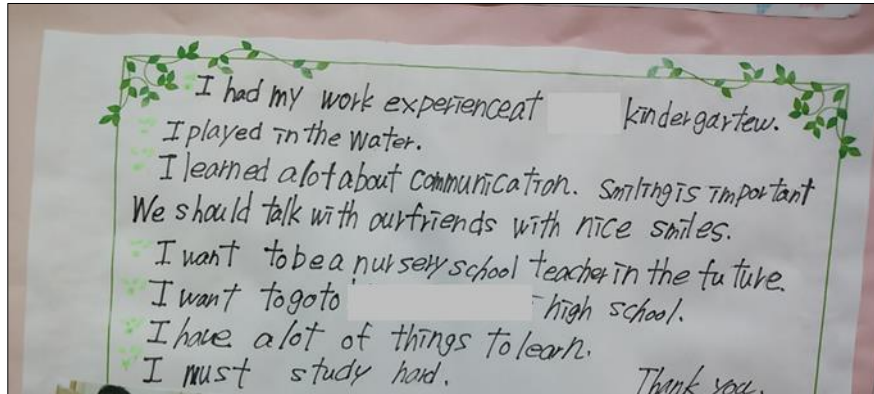 I had my work experienceat kindergartew.
I played in the water.
I learned alot about communication. Smiling is important
We should talk with our friends with nice smiles.
I want to be a nursery school teacher in the future.
I want to go to high school.
I have alot of things to learn.
I must study hard.
Thank you.